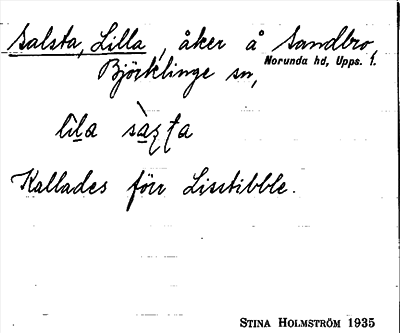 Salsta, Lilla, åker å Sandbro,
Björklinge sn, Norunda hd, Upps. l.
Kallades förr Lisstibble.
STINA HOLMSTRÖM 1935